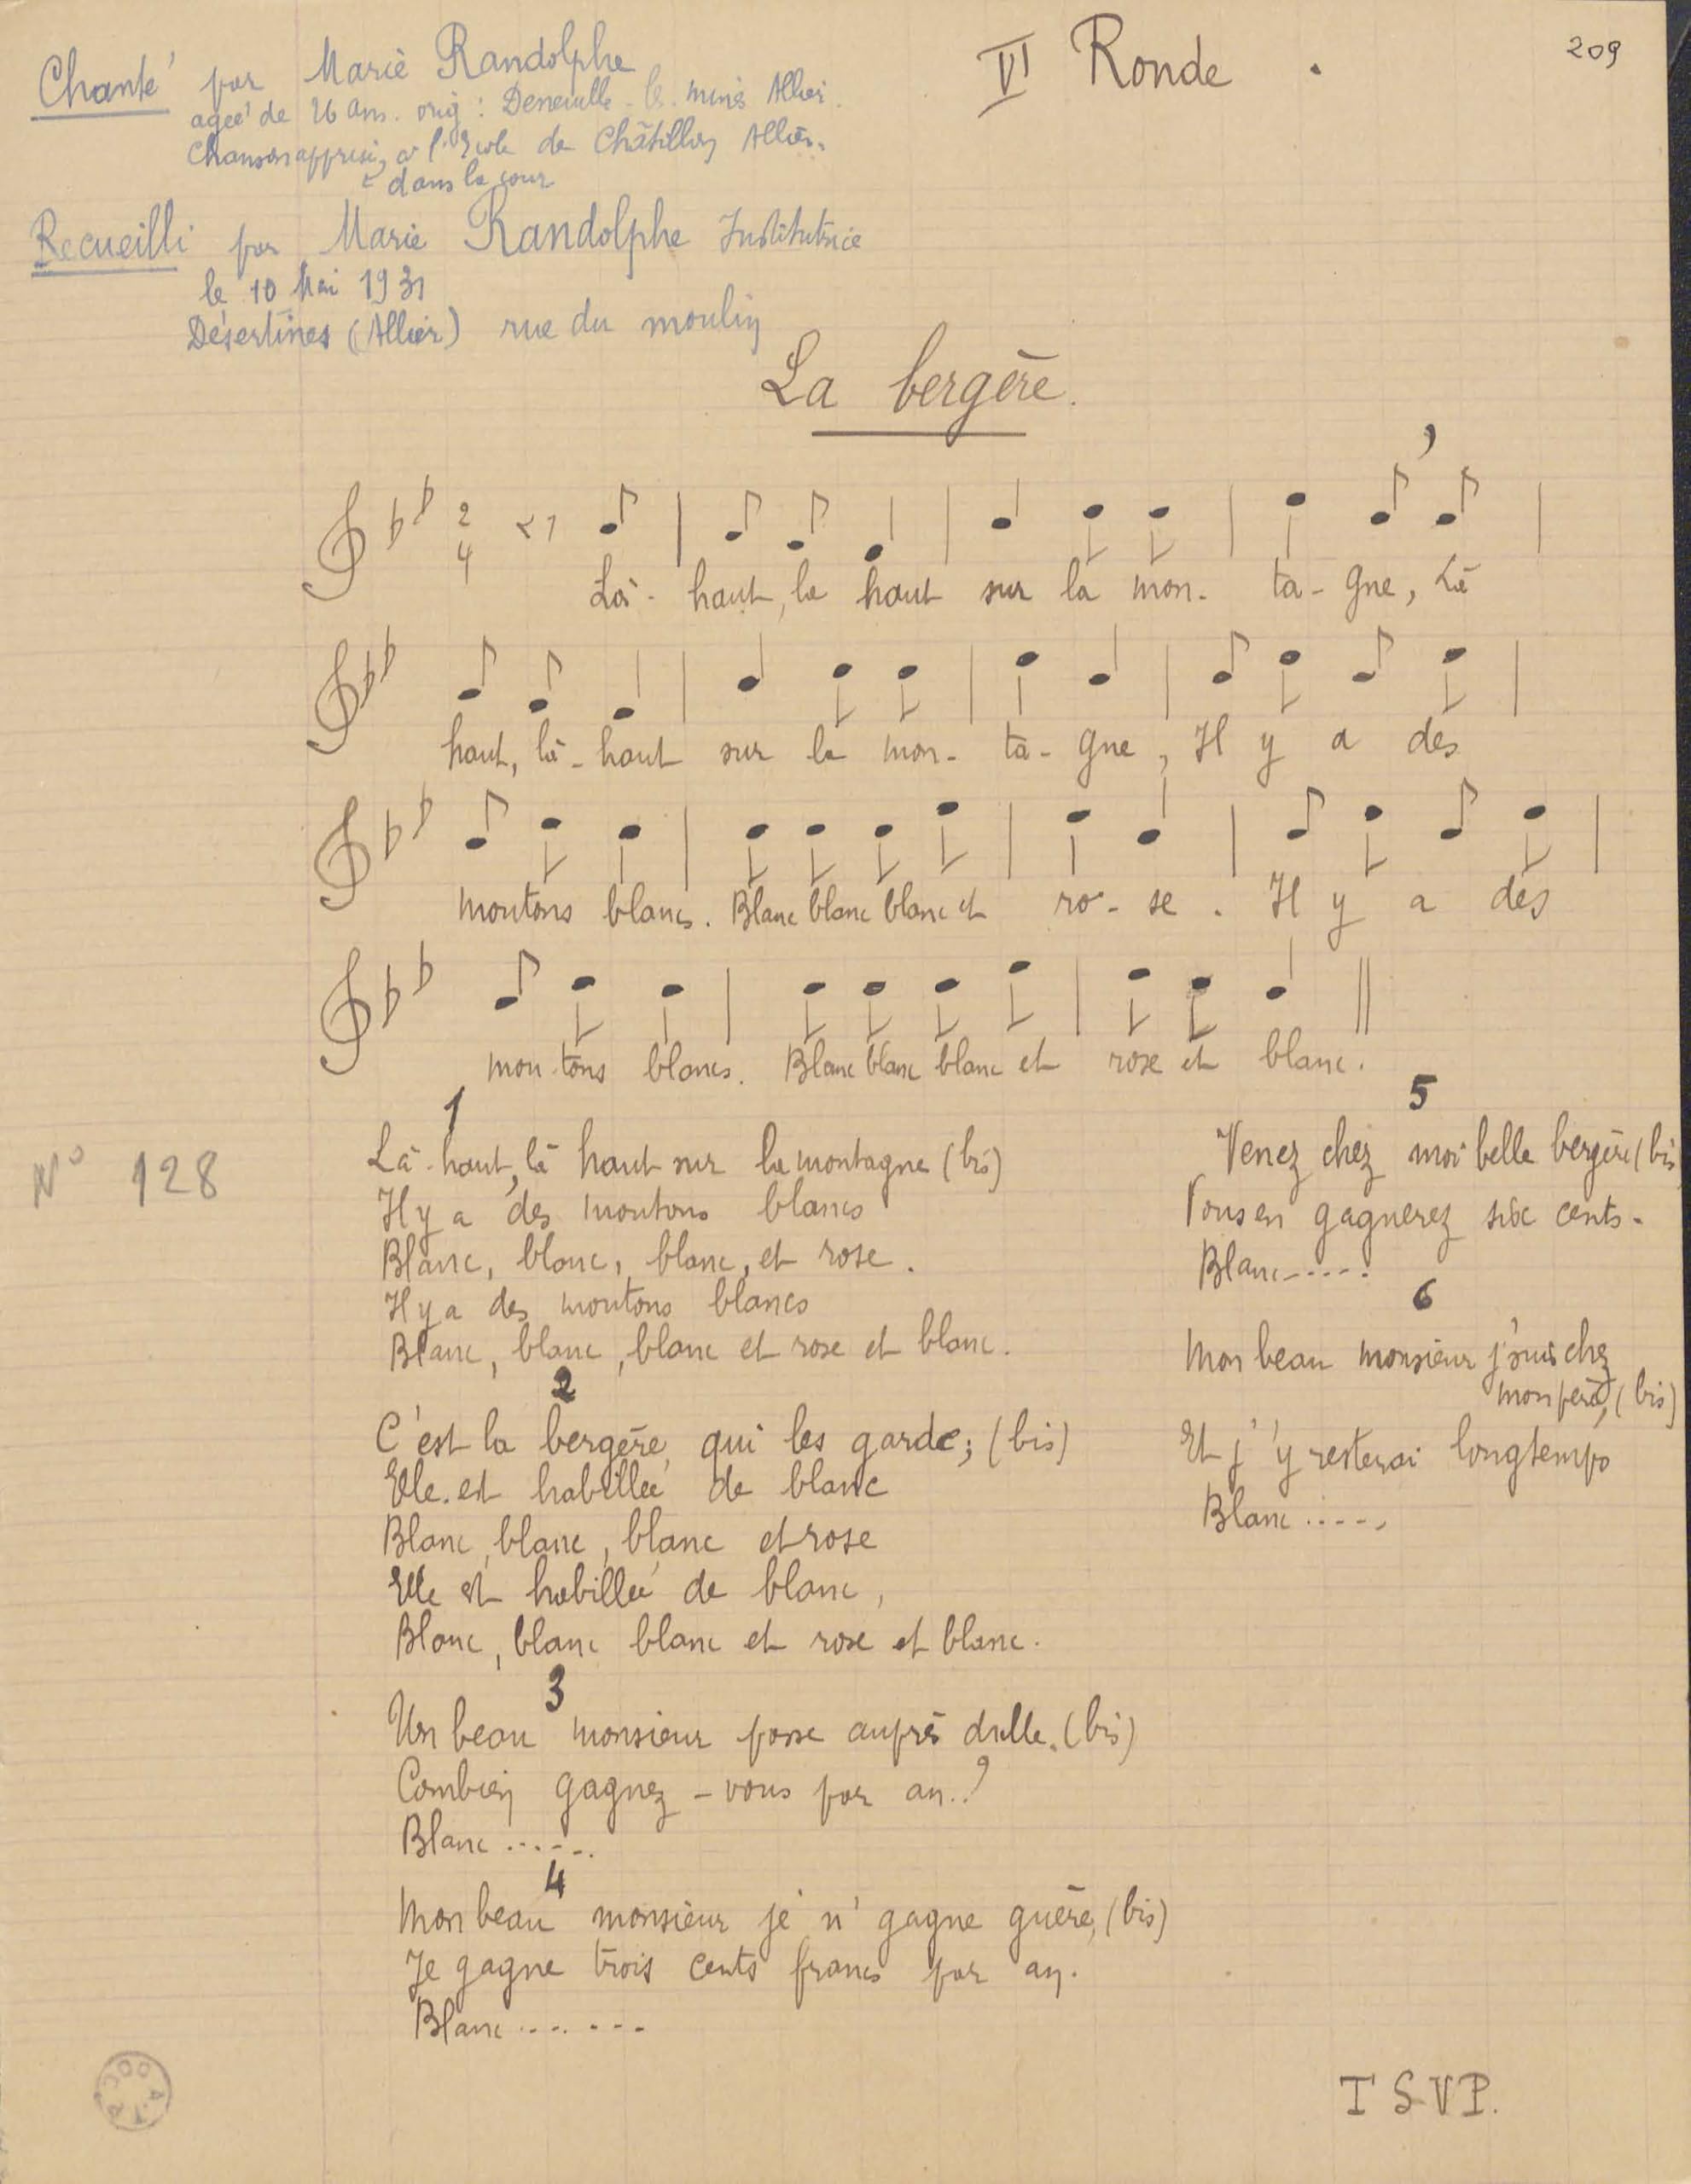 209
VI Ronde .
Chanté par Marie Randolphe
agée de 26 ans. orig : Deneuille - les - mines Allier.
Chanson apprise à l'Ecole de Châtillon Allier.
dans la cour
Recueilli par Marie Randolphe Institutrice
le 10 Mai 1931
Désertines (Allier) rue du moulin
La bergère.
2
4
Là - haut, la haut sur la mon - ta - gne, Là
haut, là - haut sur la mon - ta - gne, Il y a des
moutons blancs. Blanc blanc blanc et ro - se . Il y a des
mou-tons blancs. Blanc blanc blanc et rose et blanc.
N° 128
1
Là-haut, là haut sur la montagne (bis)
Il y a des moutons blancs
Blanc, blanc, blanc, et rose.
Il y a des moutons blancs
Blanc, blanc, blanc et rose et blanc.
2
C'est la bergère, qui les garde; (bis)
Elle est habillée de blanc
Blanc, blanc, blanc et rose
Elle est habillée de blanc,
Blanc, blanc blanc et rose et blanc.
3
Un beau monsieur passe auprès d'elle. (bis)
Combien gagnez - vous par an..?
Blanc ......
4
Mon beau monsieur je n' gagne guère, (bis)
Je gagne trois cents francs par an.
Blanc .......
5
Venez chez moi belle bergère (bis
Vous en gagnerez six cents.
Blanc......
6
Mon beau monsieur j'suis chez
mon père, (bis)
Et j'y resterai longtemps
Blanc .....
T S V P.